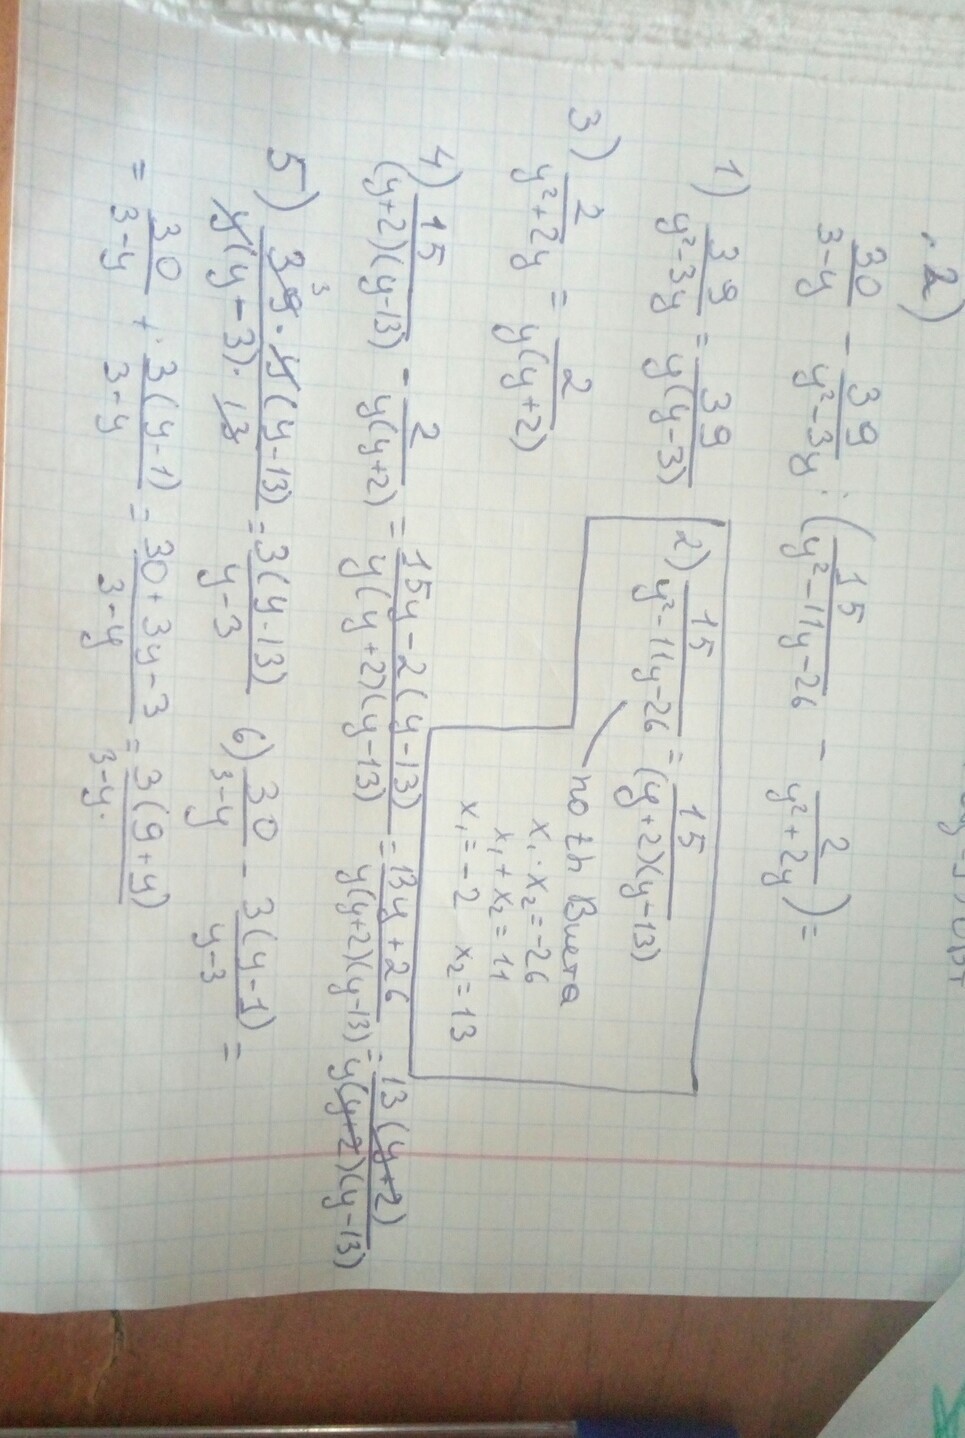 2)
30/(3-y) - 39/(y²-3y) : (15/(y²-11y-26) - 2/(y²+2y)) =
1) 39/(y²-3y) = 39/(y(y-3))
2) 15/(y²-11y-26) = 15/((y+2)(y-13))
по th Виета
x₁·x₂=-26
x₁+x₂=11
x₁=-2 x₂=13
3) 2/(y²+2y) = 2/(y(y+2))
4) 15/((y+2)(y-13)) - 2/(y(y+2)) = (15y-2(y-13))/(y(y+2)(y-13)) = (13y+26)/(y(y+2)(y-13)) = 13(y+2)/(y(y+2)(y-13))
5) 39³·y(y-13)/(y(y-3)·13) = 3(y-13)/(y-3) 6) 30/(3-y) - 3(y-1)/(y-3) =
= 30/(3-y) + 3(y-1)/(3-y) = (30+3y-3)/(3-y) = 3(9+y)/(3-y).